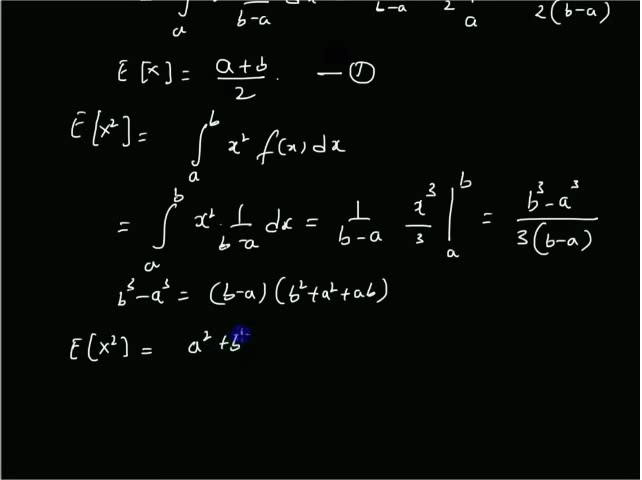 ∫ₐ b-a b-a 2 a 2(b-a)
E[x] = (a+b)/2. — ①
E[x²] = ∫ₐᵇ x² f(x) dx
= ∫ₐᵇ x² · 1/(b-a) dx = 1/(b-a) x³/3 |ₐᵇ = (b³-a³)/(3(b-a))
b³-a³ = (b-a)(b²+a²+ab)
E[x²] = a² + b